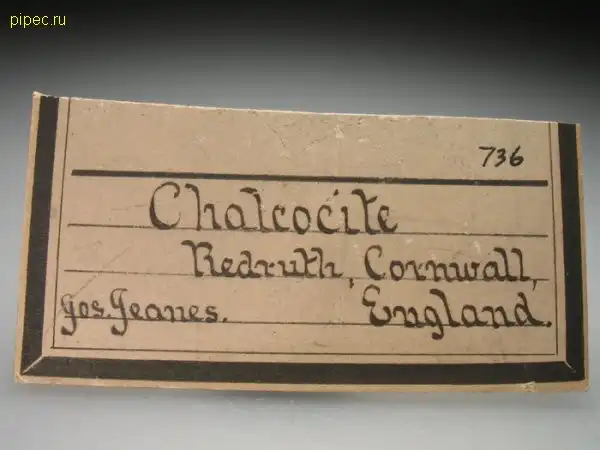 pipec.ru
736
Chalcocite
Redruth, Cornwall,
Jos. Jeanes. England.